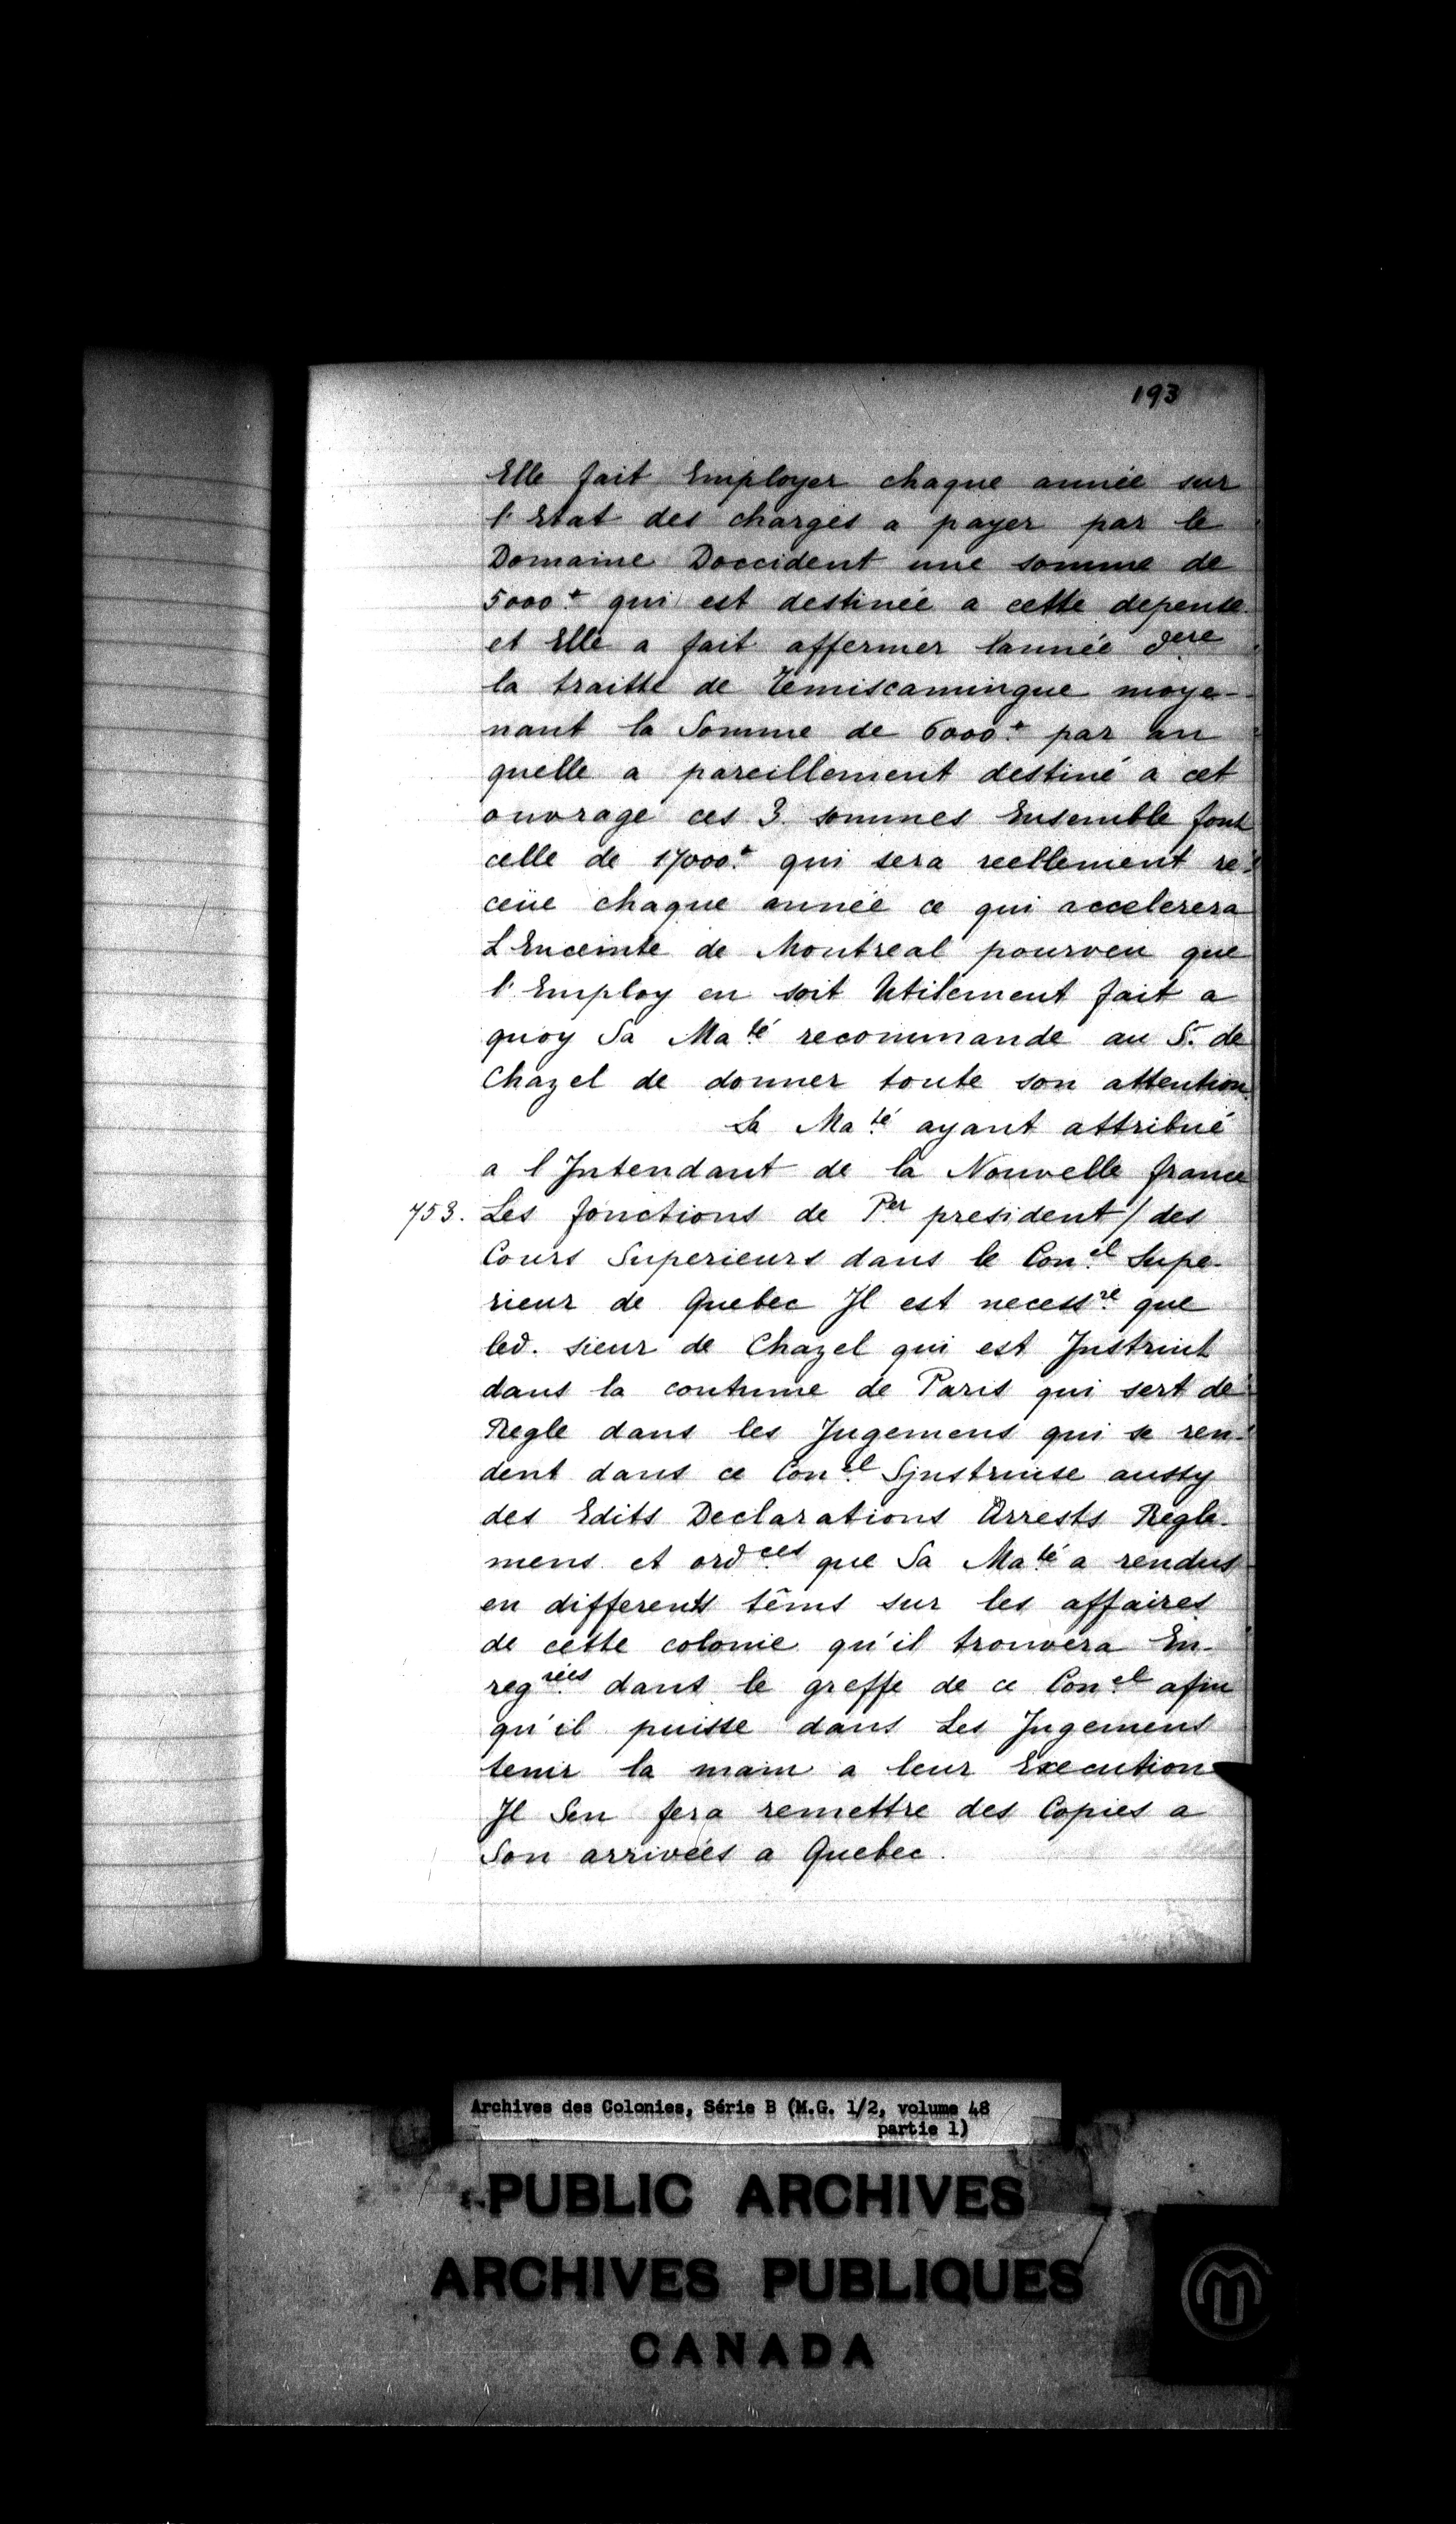 193
Elle fait Employer chaque année sur
l'Etat des charges a payer par le
Domaine Doccident une somme de
5000 ₶ qui est destinée a cette depense
et Elle a fait affermer lannée dere
la traitte de Temiscamingue moye-
nant la Somme de 6000 ₶ par an
quelle a pareillement destiné a cet
ouvrage ces 3 sommes Ensemble font
celle de 17000 ₶ qui sera reellement re-
ceüe chaque année ce qui accelerera
L'Enceinte de Montreal pourveu que
l'Employ en soit Utilement fait a
quoy Sa Maté recommande au Sr. de
Chazel de donner toute son attention.
Sa Maté ayant attribué
a l'Intendant de la Nouvelle france
753. Les fonctions de Per president / des
Cours Superieurs dans le Conel Supe-
rieur de Quebec Il est necessre que
led. sieur de Chazel qui est Instruit
dans la coutume de Paris qui sert de
Regle dans les Jugemens qui se ren-
dent dans ce Conel Sjnstruise aussy
des Edits Declarations Arrests Regle-
mens et ordces que Sa Maté a rendus
en differents têms sur les affaires
de cette colonie qu'il trouvera En-
regrées dans le greffe de ce Conel afin
qu'il puisse dans Les Jugemens
tenir la main a leur Execution
Il Sen fera remettre des Copies a
Son arrivées a Quebec.
Archives des Colonies, Série B (M.G. 1/2, volume 48
partie 1)
PUBLIC ARCHIVES
ARCHIVES PUBLIQUES
CANADA